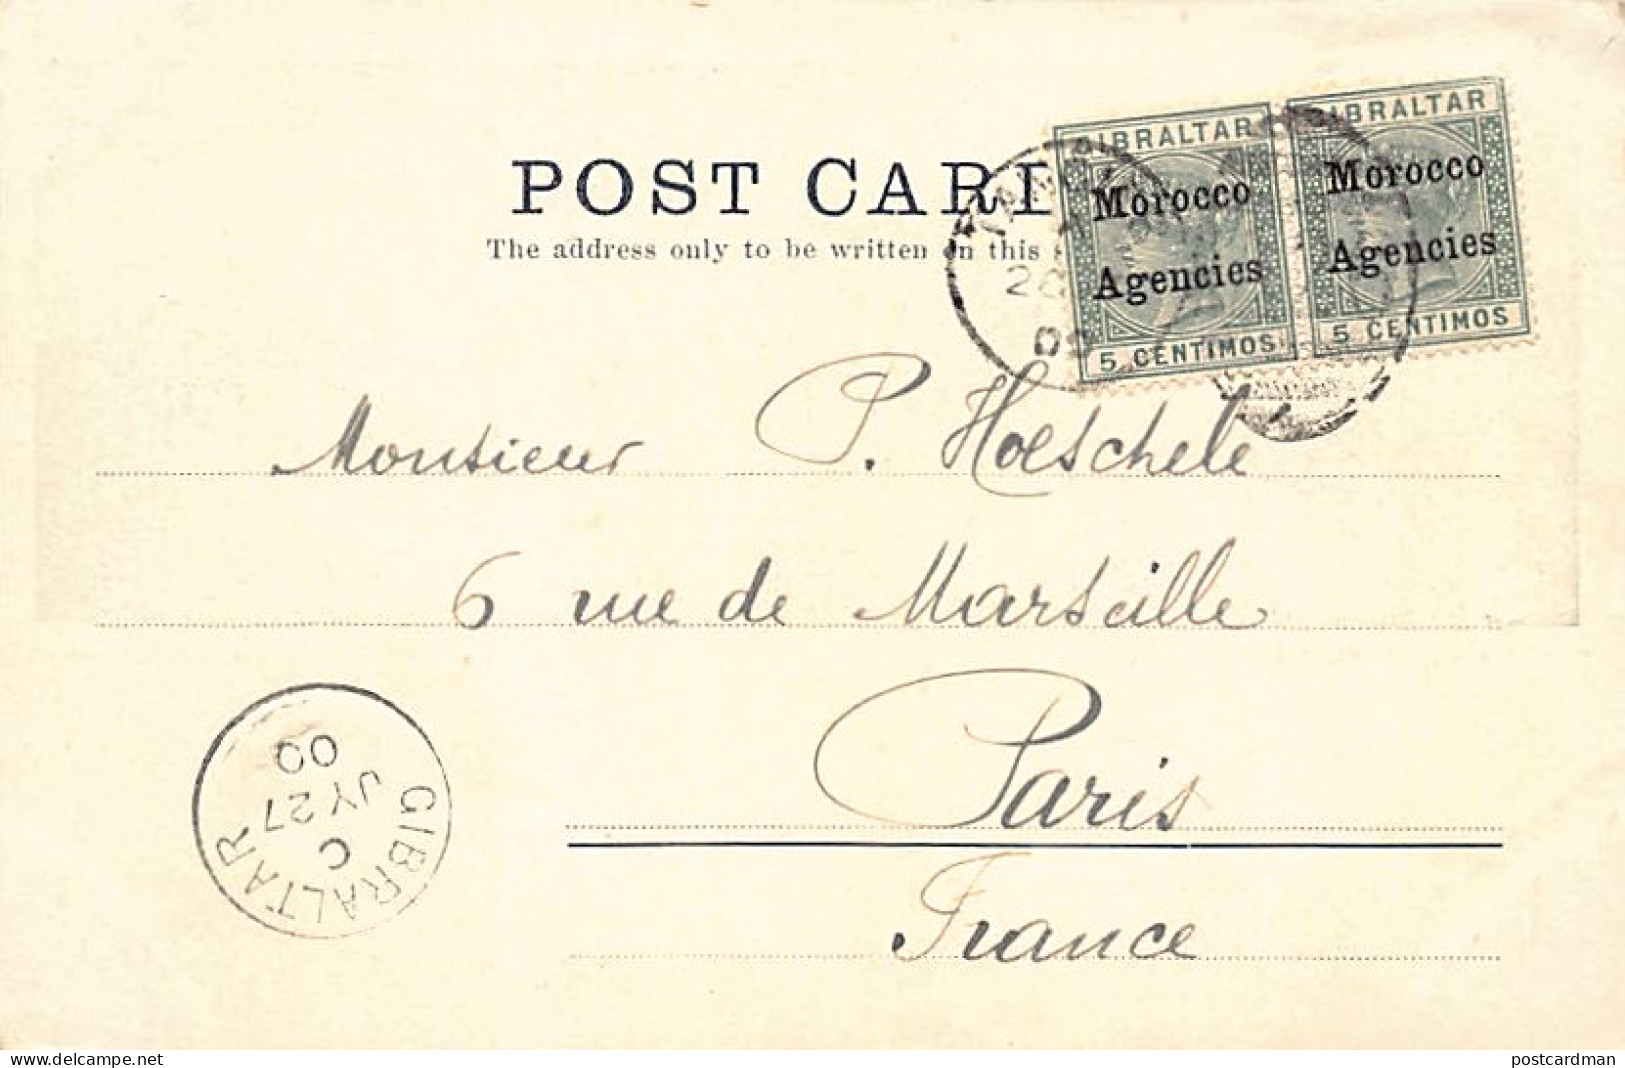 POST CARD
The address only to be written on this
GIBRALTAR
Morocco
Agencies
5 CENTIMOS
GIBRALTAR
Morocco
Agencies
5 CENTIMOS
Monsieur P. Hoeschele
6 rue de Marseille
Paris
France
GIBRALTAR
C
JY 27
00
www.delcampe.net
postcardman